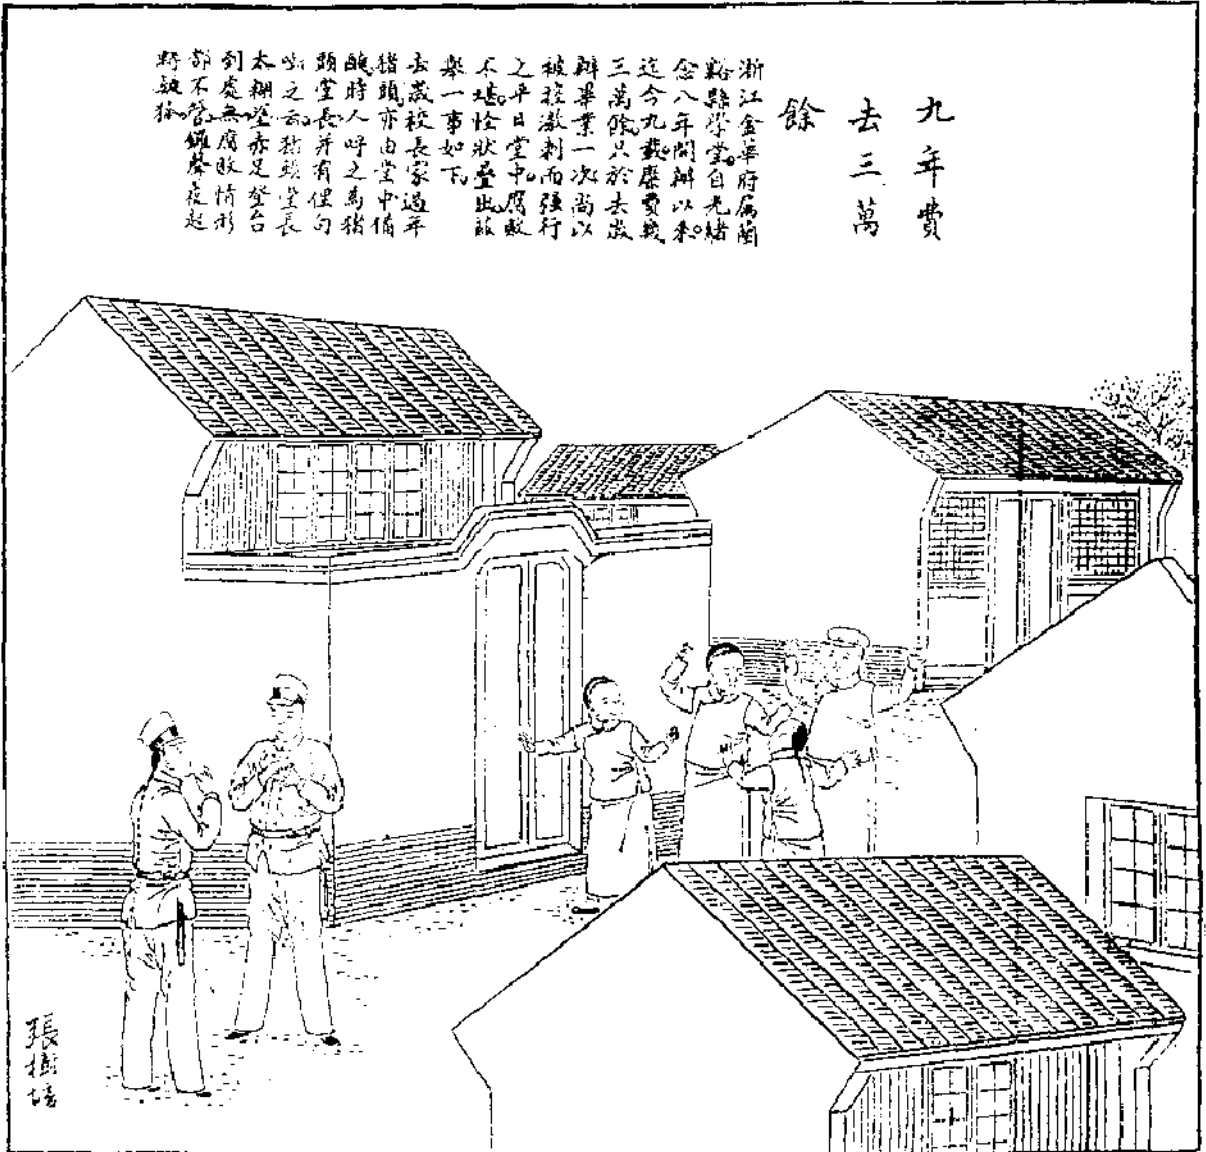 九年費
去三萬
餘
浙江金華府属蘭
谿縣學堂自光緒
念八年開辦以來
迄今九載縻費幾
三萬餘只於去歲
辦畢業一次尚以
被控激刺而强行
之平日堂中腐敗
不堪怪狀疊出茲
舉一事如下
去歲校長家過年
猪頭亦由堂中備
醜時人呼之爲猪
頭堂長并有俚句
嘲之云猪頭堂長
太糊塗赤足登台
到處無腐敗情形
都不管鑼聲夜起
張樹培